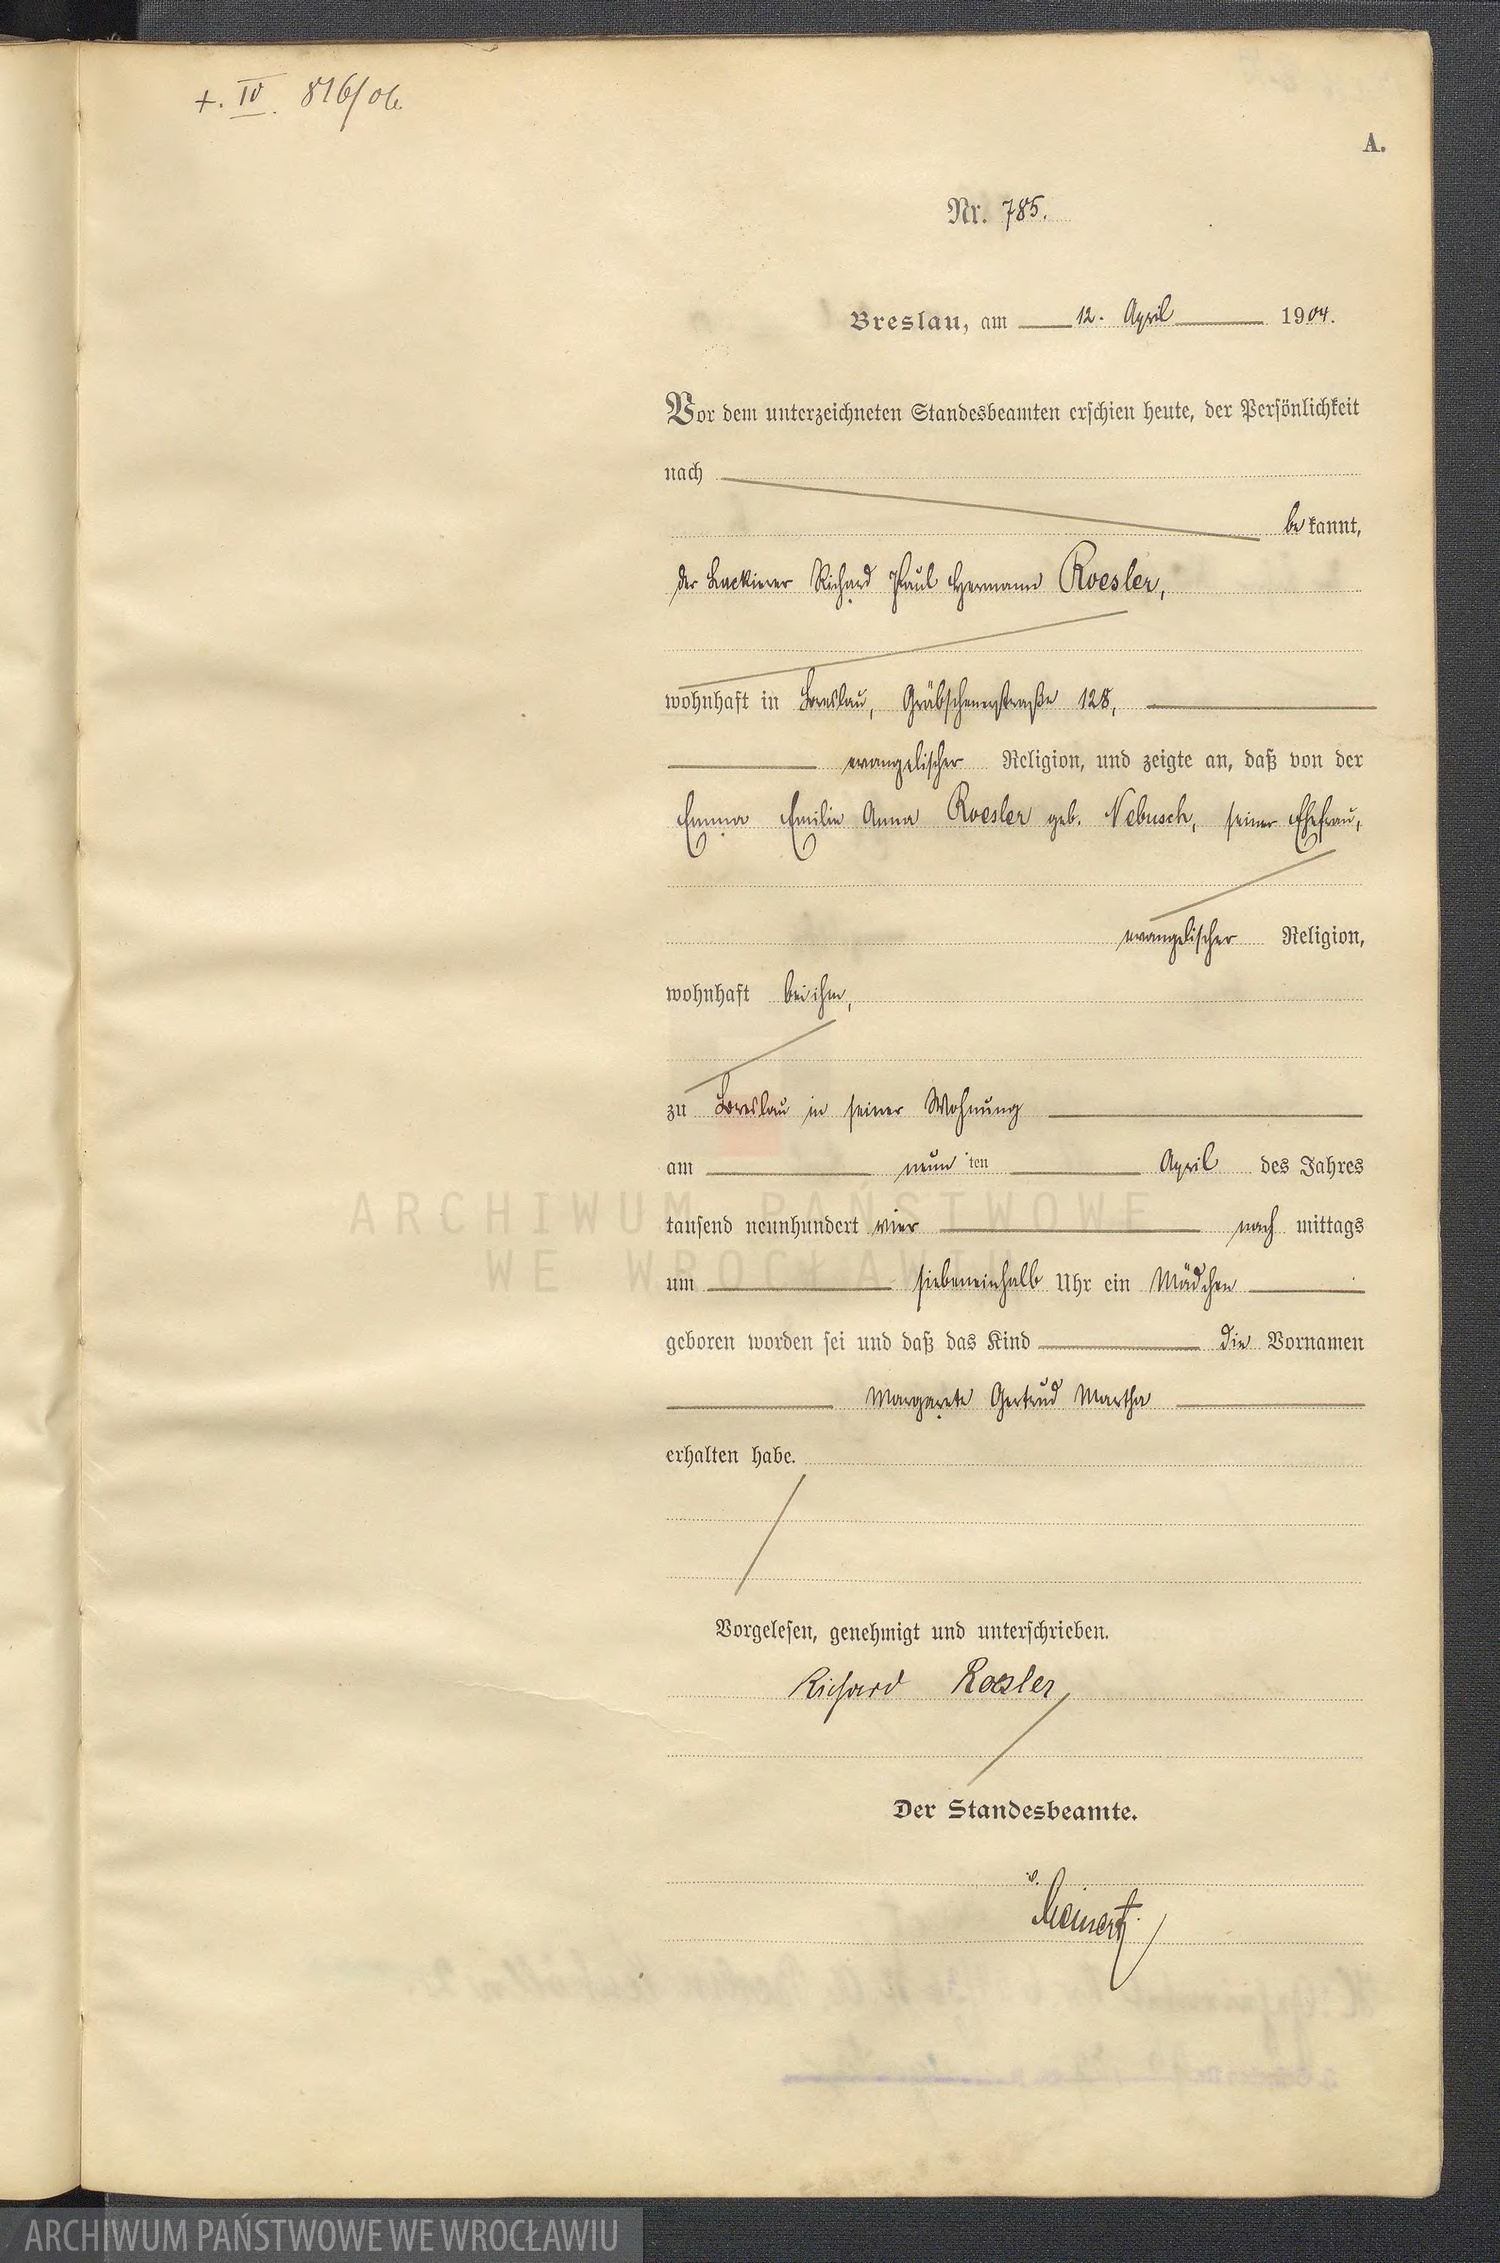 +. IV 816/06.
A.
Nr. 785.
Breslau, am 12. April 1904.
Vor dem unterzeichneten Standesbeamten erschien heute, der Persönlichkeit
nach
bekannt,
der Lackierer Richard Paul Hermann Roesler,
wohnhaft in Breslau, Gräbschenerstraße 128,
evangelischer Religion, und zeigte an, daß von der
Emma Emilie Anna Roesler geb. Nebusch, seiner Ehefrau,
evangelischer Religion,
wohnhaft bei ihm,
zu Breslau in seiner Wohnung
am neunten April des Jahres
tausend neunhundert vier nach mittags
um siebeneinhalb Uhr ein Mädchen
geboren worden sei und daß das Kind die Vornamen
Margarete Gertrud Martha
erhalten habe.
Vorgelesen, genehmigt und unterschrieben.
Richard Roesler
Der Standesbeamte.
ARCHIWUM PAŃSTWOWE
WE WROCŁAWIU
ARCHIWUM PAŃSTWOWE WE WROCŁAWIU